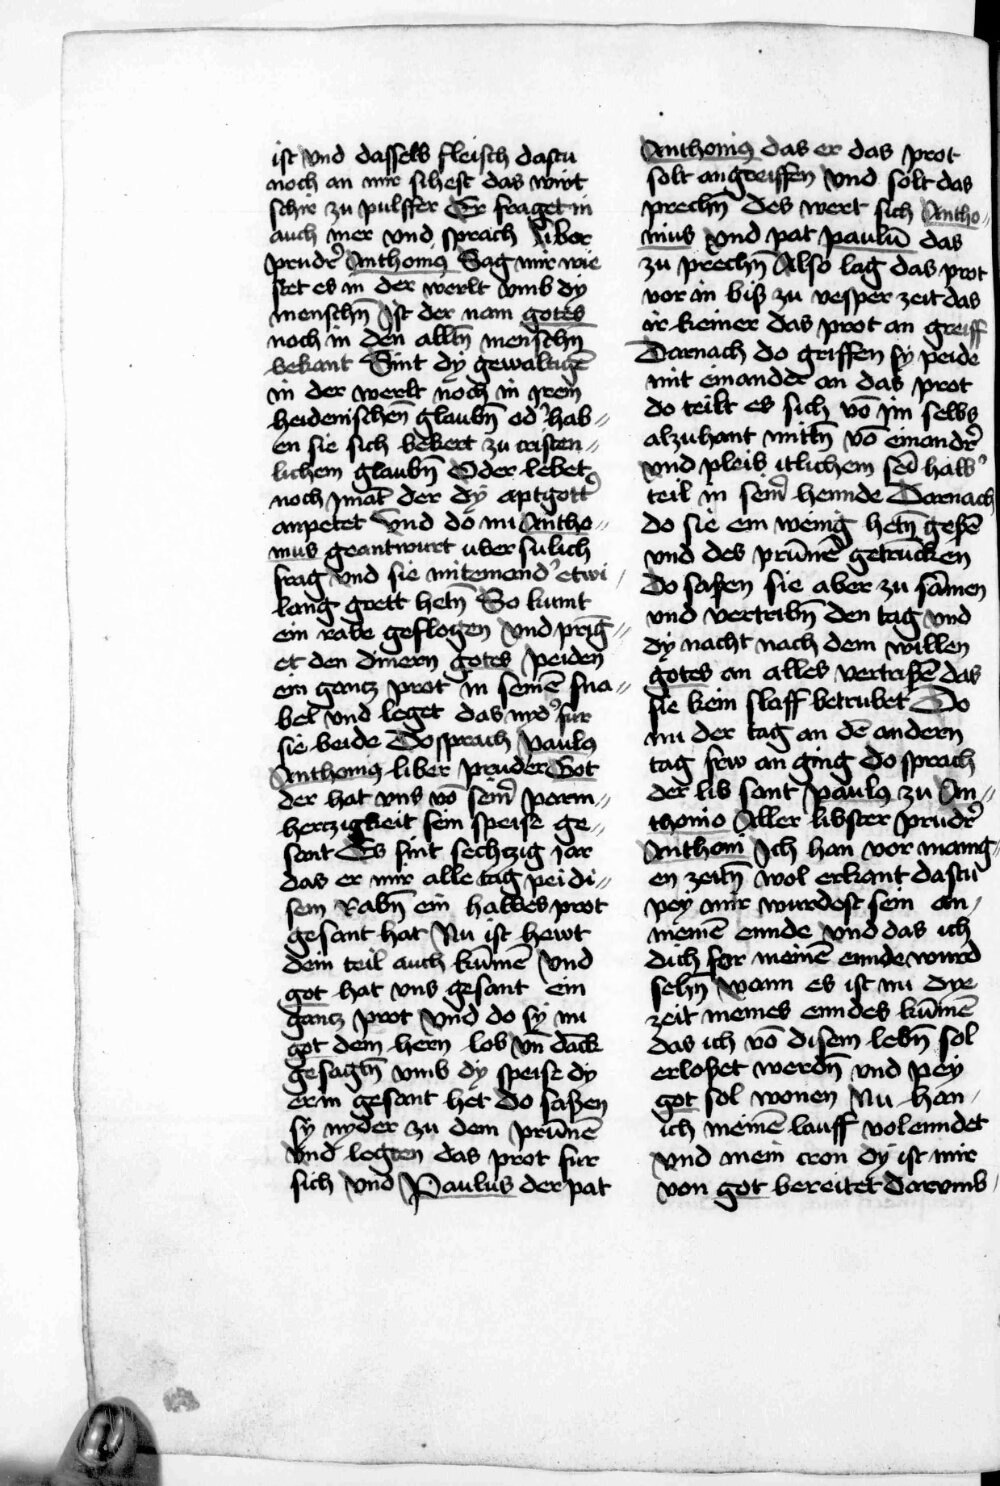 ist vnd dasselb fleisch dastu
noch an mir sihest das wirt
schir zu pulffer Er fraget in
auch mer vnd sprach liber
prudr̄ Anthonius Sag mir wie
stet es in der werlt vmb dy
menschn̄ Ist der nam gotes
noch in den alltn̄ menschn
bekant Sint dy gewaltigē
in der werlt noch in jrem
heidenischen̄ glaubn̄ od' hab„
en sie sich bekert zu cristen„
lichem glaubn̄ Oder lebet
noch jmāt der dy aptgott'
anpetet Vnd do nu Antho„
nius geantwurt uber sulich
frag vnd sie miteinand' etwi
lang grett hetn̄ So kumt
ein rabe geflogen vnd prīg„
et den dinern gotes peiden
ein gantz prot in seinē sna„
bel vnd leget das nyd' fur
sie beide Do sprach Paulus
Anthonius liber pruder Got
der hat vns vō seinr̄ parm„
hertzigkeit sein speise ge„
sant Es sint sechtzig jar
das er mir alle tag pei di„
sem Rabn̄ ein halbes prot
gesant hat Nu ist hewt
dein teil auch kūmē vnd
got hat vns gesant ein
gantz prot vnd do sy nu
got dem hern lob vn̄ danck
gesagtn̄ vmb dy speise dy
er in gesant het do saßen
sy nyder zu dem prūnē
vnd legten das prot fur
sich vnd Paulus der pat
Anthonius das er das prot
solt angreiffen vnd solt das
prechn̄ des wert sich Antho„
nius vnd pat paulū das
zu prechn̄ Also lag das prot
vor in biß zu vesper zeit das
ir keiner das prot an greiff
Darnach do griffen sy peide
mit einander an das prot
do teilt es sich vō jm selbs
alzuhant mittn̄ vō einandr̄
vnd pleib itlichem sei halb'
teil in seinr̄ hennde Darnach
do sie ein wenig hetn̄ geßē
vnd des prūnē getrūcken
Do saßen sie aber zu sāmen
vnd vertribn̄ den tag vnd
dy nacht nach dem willen
gotes an alles vertrißē das
sie kein slaff betrubet Do
nu der tag an dē andern
tag frw an ging do sprach
der lib sant paulus zu An„
thonio Aller libster prudr̄
Anthoni Ich han vor manig„
en zeitn̄ wol erkant dastu
pey mir wurdest sein an
meinē ennde vnd das ich
dich for meinē ennde wurd
sehn̄ wann es ist nu dye
zeit meines enndes kūmē
das ich vō disem lebn̄ sol
erloßet werdn̄ vnd pey
got sol wonen Nu han
ich meinē lauff volenndet
vnd mein cron dy ist mir
von got bereitet Darvmb